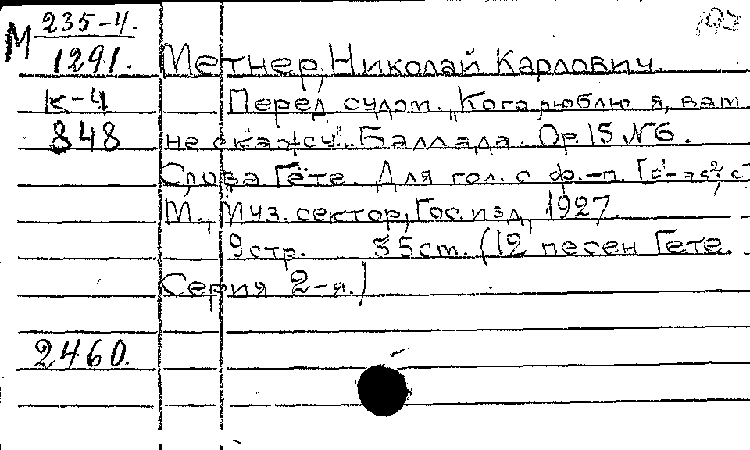 М 235-4.
1291.
Метнер, Николай Карлович.
к-4
Перед судом. „Кого люблю я, вам
848
не скажу". Баллада. Op. 15 №6.
Слова Гёте. Для гол. с ф.-п.
М., Муз. сектор, Гос. изд, 1927.
9 стр. 35 ст. (12 песен Гете.
Серия 2-я.)
2460.